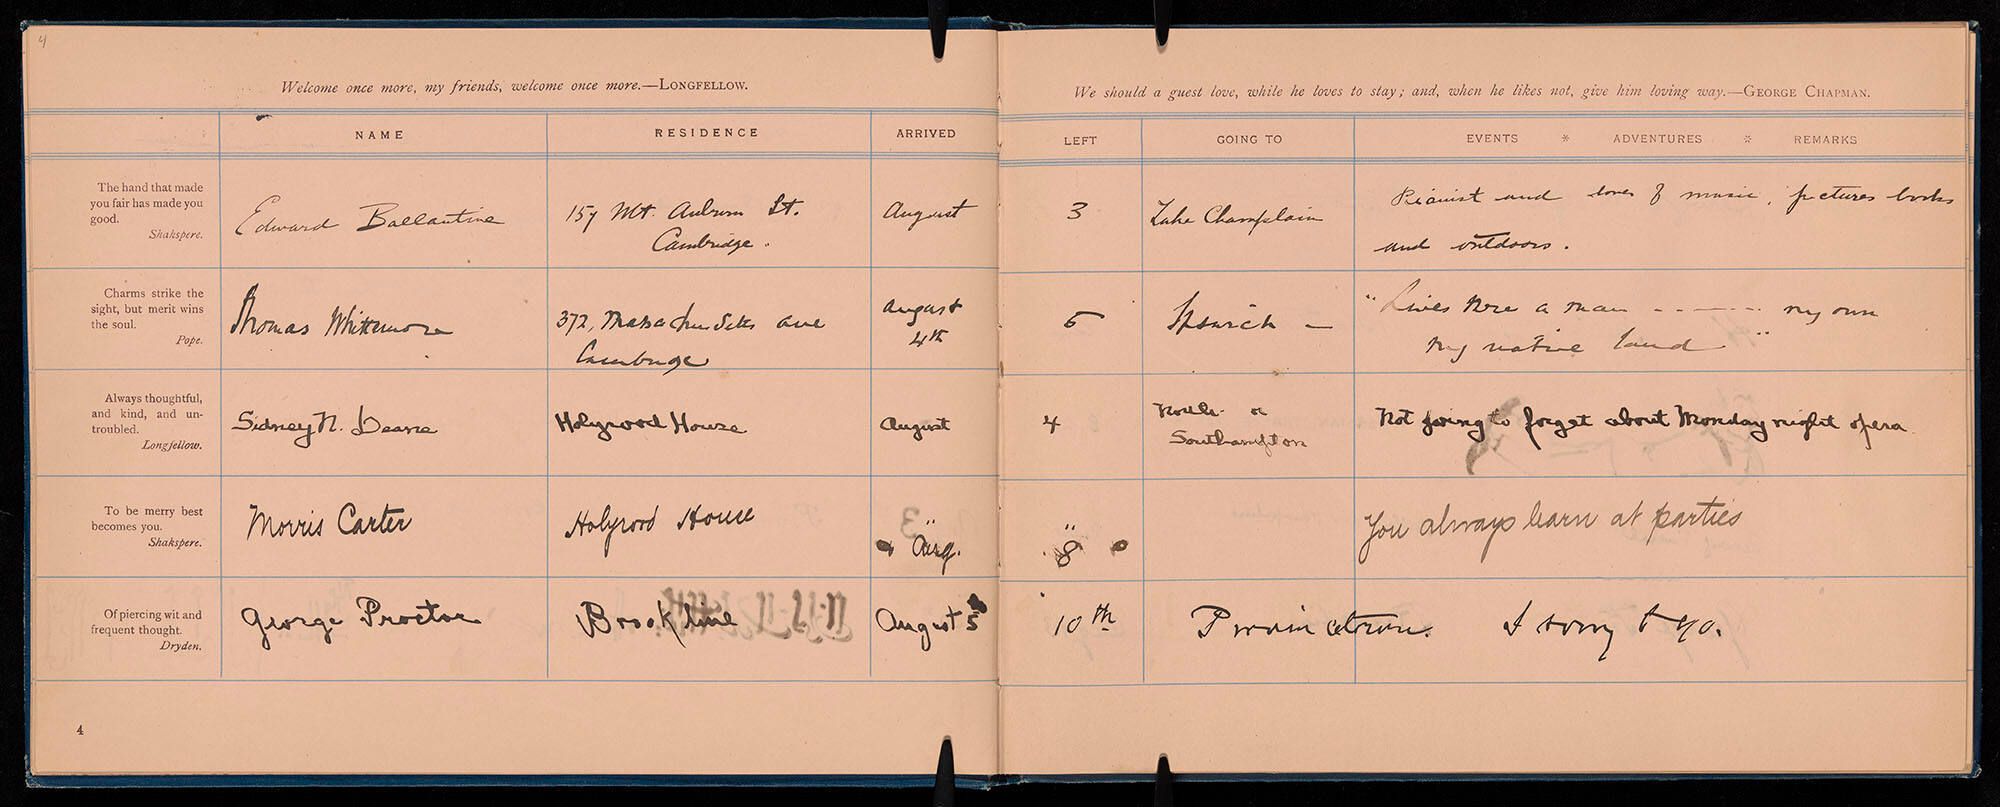 4
Welcome once more, my friends, welcome once more.—LONGFELLOW.
We should a guest love, while he loves to stay; and, when he likes not, give him loving way.—GEORGE CHAPMAN.
NAME RESIDENCE ARRIVED LEFT GOING TO EVENTS * ADVENTURES * REMARKS
The hand that made
you fair has made you
good.
Shakspere.
Edward Ballantine
157 Mt. Auburn St.
Cambridge.
August
3
Lake Champlain
Pianist and lover of music, pictures books
and outdoors.
Charms strike the
sight, but merit wins
the soul.
Pope.
Thomas Whittemore
372, Massachusetts ave
Cambridge
August
4th
5
Ipswich —
"Lives there a man - - - - - - my own
my native land"
Always thoughtful,
and kind, and un-
troubled.
Longfellow.
Sidney N. Deane
Holyrood House
August
4
North- or
Southampton
Not going to forget about Monday night opera
To be merry best
becomes you.
Shakspere.
Morris Carter
Holyrood House
" 3
Aug.
"
8
You always learn at parties
Of piercing wit and
frequent thought.
Dryden.
George Proctor
Brookline
August 5
10th
I sorry to go.
4